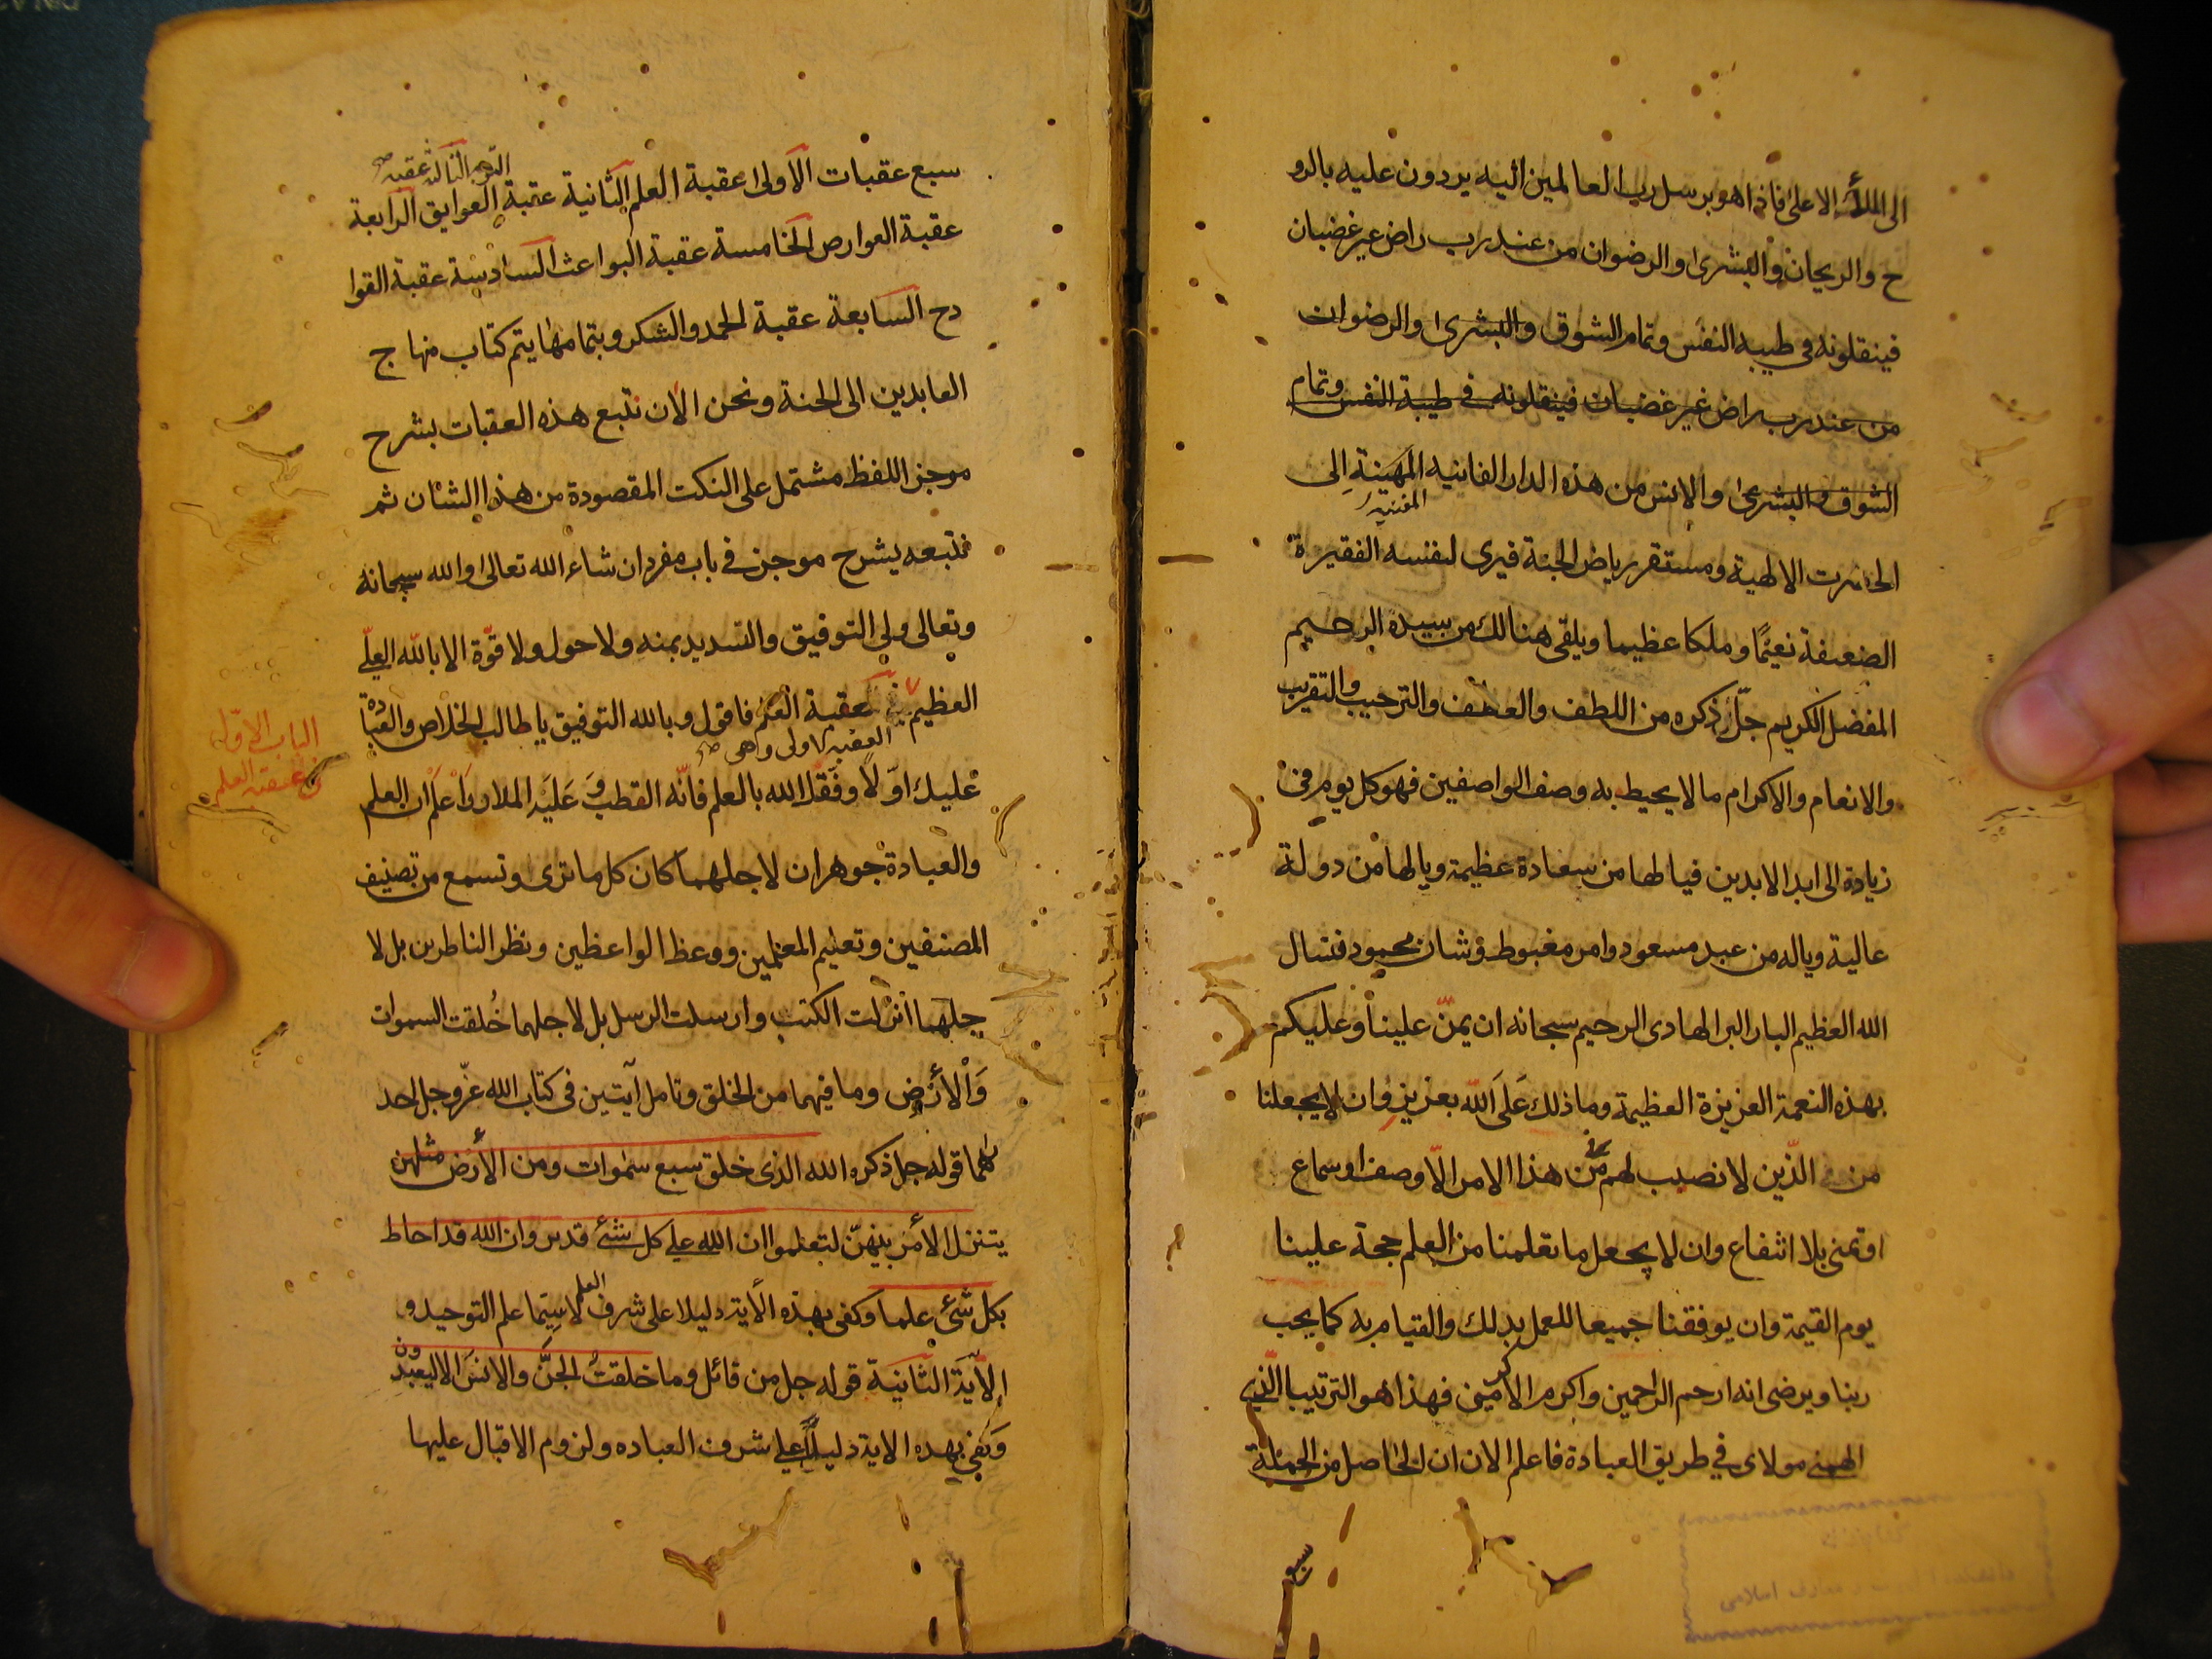 الى الملأ الاعلى فاذا هو برسل رب العالمين اليه يردون عليه بالرو
ح والريحان والبشرى والرضوان من عند رب راض غير غضبان
فينقلونه في طيبه النفس وتمام الشوق والبشرى والرضوان
من عند رب راض غير غضبان فينقلونه في طيبة النفس وتمام
الشوق والبشرى والانس من هذه الدار الفانيه المهينة الى
المفنيه
الحضرت الالهية ومستقر رياض الجنة فيرى لنفسه الفقيرة
الضعيفة نعيمًا وملكا عظيما ويلقى هنالك من سيده الرحيم
المفضل الكريم جلّ ذكره من اللطف والعطف والترحيب والتقريب
والانعام والاكرام ما لا يحيط به وصف الواصفين فهو كل يوم في
زيادة الى ابد الابدين فيالها من سعادة عظيمة ويالها من دولة
عالية وياله من عبد مسعود وامر مغبوط وشان محمود فنسال
الله العظيم البار البر الهادى الرحيم سبحانه ان يمنّ علينا وعليكم
بهذه النعمة العزيزة العظيمة وما ذلك عَلَى اللّه بعزيز وان لا يجعلنا
من الذّين لا نصيب لهم من هذا الامر الّا وصف او سماع
او تمنى بلا انتفاع وان لا يجعل ما تعلمنا من العلم حجة علينا
يوم القيمة وان يوفقنا جميعا للعمل بذلك والقيام به كما يحب
ربنا ويرضى انه ارحم الراحمين واكرم الاكرمين فهذا هو الترتيب الّذي
الهمني مولاى في طريق العبادة فاعلم الان ان الحاصل من الجملة
سبع
التوبه الثالثة عقبه صح
سبع عقبات الاولى عقبة العلم الثانية عقبة العوايق الرابعة
عقبة العوارض الخامسة عقبة البواعث السادسة عقبة القوا
دح السابعة عقبة الحمد والشكر وبتمامها يتم كتاب منهاج
العابدين الى الجنة ونحن الان نتبع هذه العقبات بشرح
موجز اللفظ مشتمل على النكت المقصودة من هذا الشان ثم
نتبعه بشرح موجز في باب مفرد ان شاء الله تعالى والله سبحانه
وتعالى ولى التوفيق والتسديد بمنه ولا حول ولا قوّة الا بالله العلّي
العظيم في عقبة العلم فاقول وبالله التوفيق يا طالب الخلاص والعبادة
العقبه الاولى وهى صح
الباب الاوّل
في عقبة العلم
عليك اوّلًا وفقك الله بالعلم فانّه القطب وَعَلَيه المدار واعلم ان العلم
والعبادة جوهران لاجلهما كان كل ما ترى وتسمع من تصنيف
المصنفين وتعليم المعلمين ووعظ الواعظين ونظر الناطرين بل لا
جلهما انزلت الكتب وارسلت الرسل بل لاجلهما خُلقت السموات
وَالأرْض وما فيهما من الخلق وتامل آيتين في كتاب الله عزّ وجل احد
اهما قوله جل ذكره الله الذى خلق سبع سموات ومن الأرض مثلهن
يتنزل الأمر بينهنّ لتعلموا ان الله على كل شئ قدير وان الله قد احاط
بكل شئ علما وكفى بهذه الأية دليلا على شرف العلم لاسيّما علم التوحيد و
الآيَة الثّانيَة قوله جل من قائل وما خلقتُ الجنّ والانسَ الا ليعبدون
وَكفى بهده الاية دليلًا على شرف العباده ولزوم الاقبال عليها